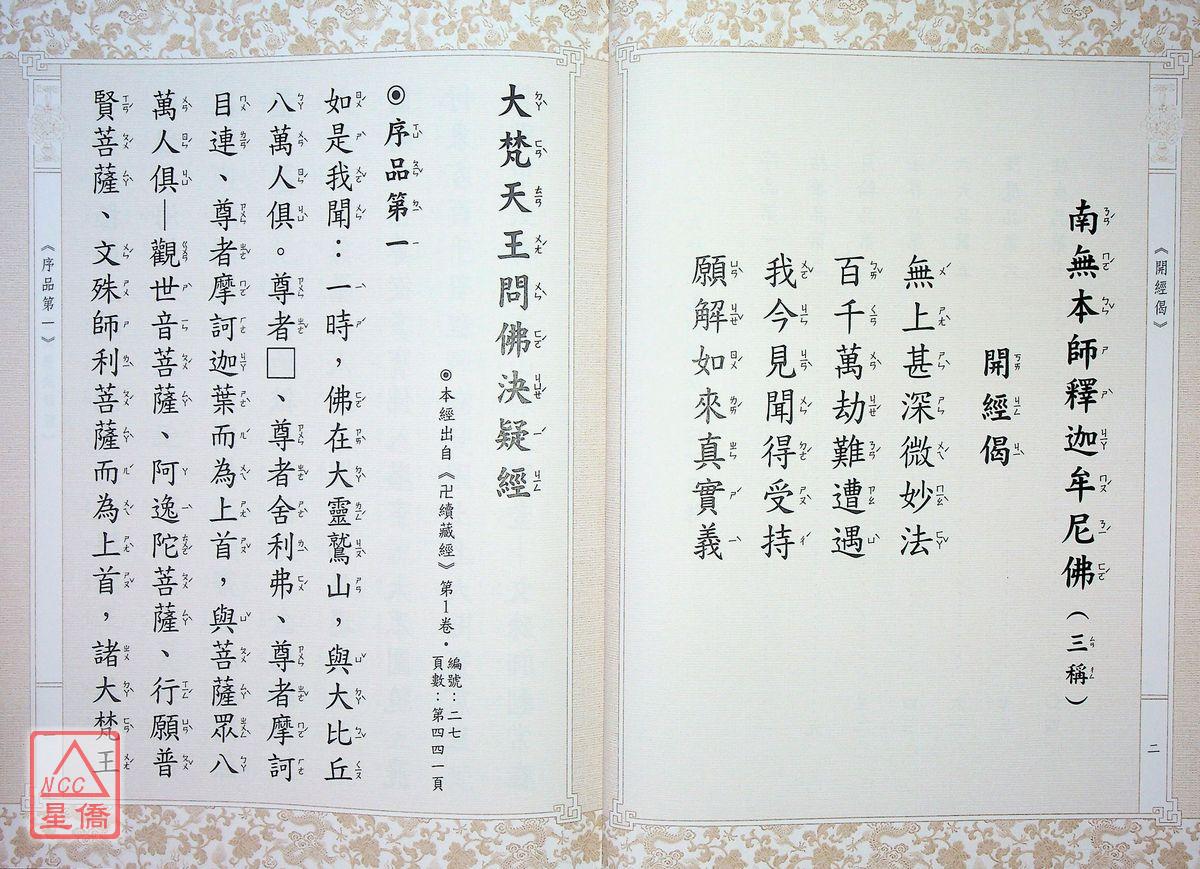 《開經偈》
二
南無本師釋迦牟尼佛（三稱）
開經偈
無上甚深微妙法
百千萬劫難遭遇
我今見聞得受持
願解如來真實義
大梵天王問佛決疑經
◎本經出自《卍續藏經》第1卷・
編號：二七
頁數：第四四一頁
◎序品第一
如是我聞：一時，佛在大靈鷲山，與大比丘
八萬人俱。尊者□、尊者舍利弗、尊者摩訶
目連、尊者摩訶迦葉而為上首，與菩薩眾八
萬人俱—觀世音菩薩、阿逸陀菩薩、行願普
賢菩薩、文殊師利菩薩而為上首，諸大梵王
《序品第一》
NCC
星僑